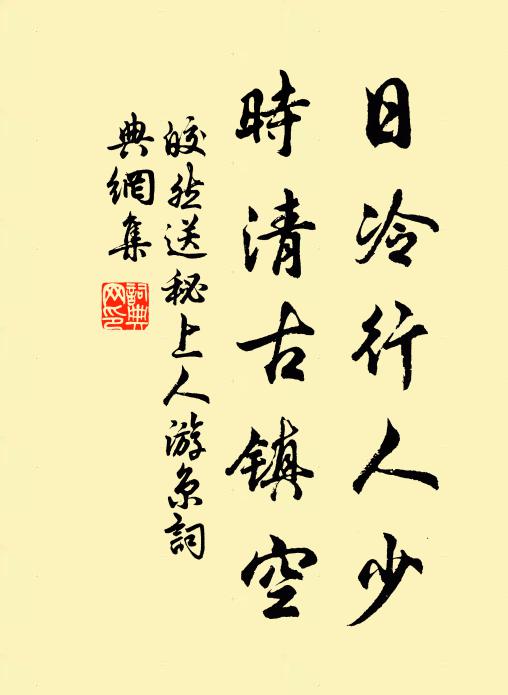 日冷行人少
時清古镇空
皎然送秘上人游京詞
典網集
詞典网印